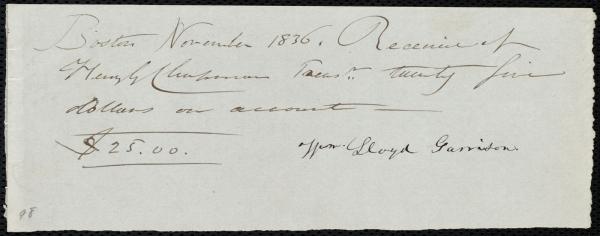 Boston November 1836. Receive of
Henry G Chapman Treasr. twenty five
dollars on account —
$25.00. Wm. Lloyd Garrison.
98